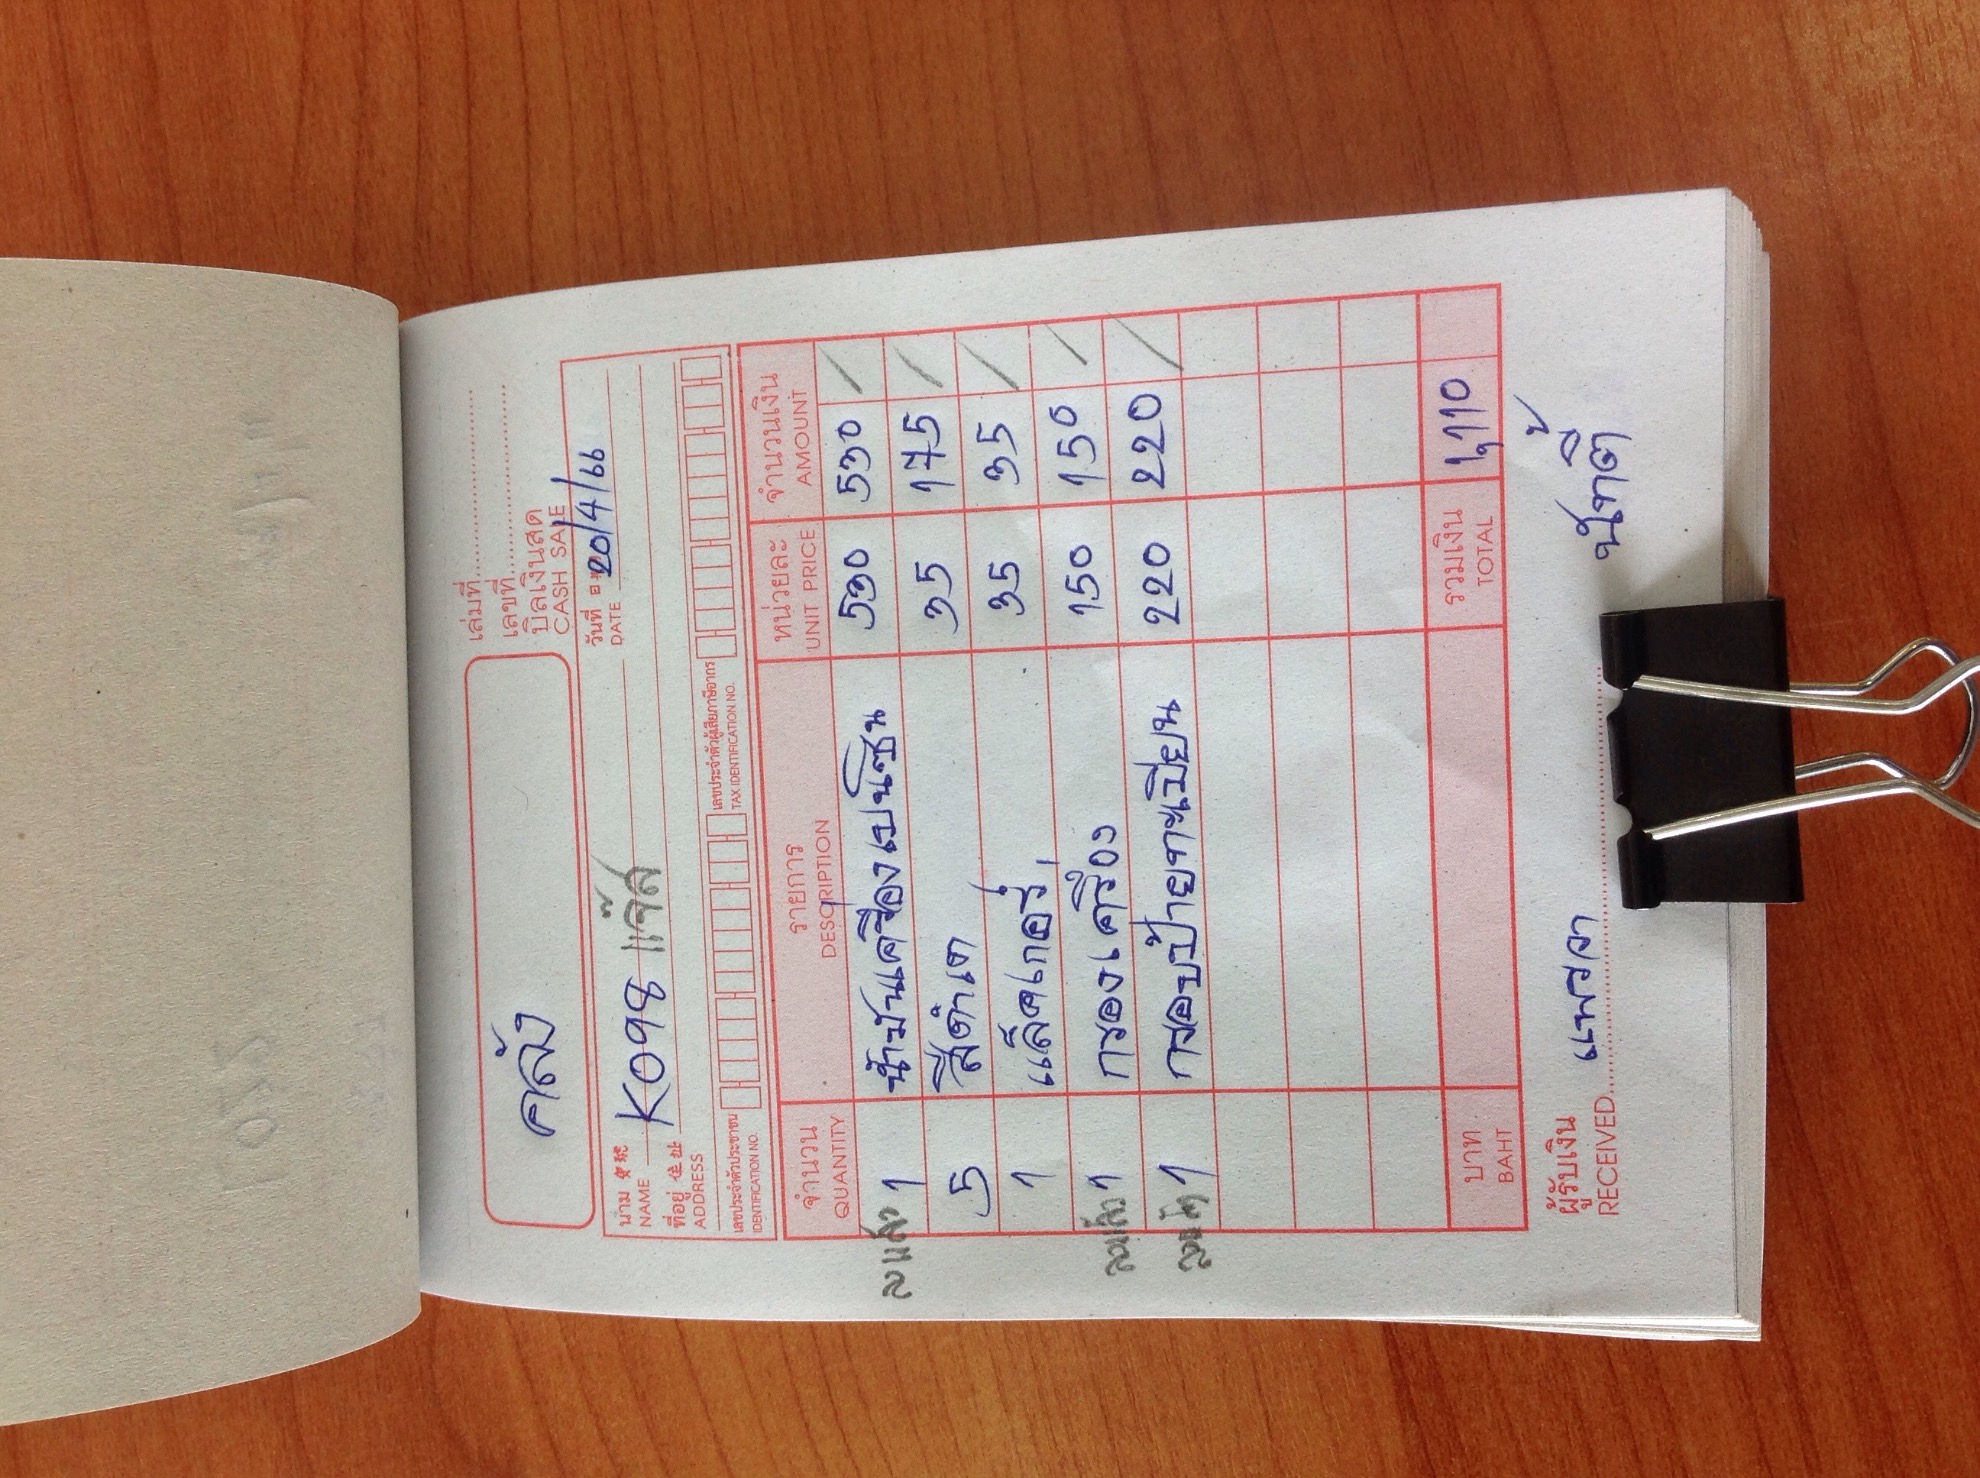 คลัง
เล่มที่
เลขที่
บิลเงินสด
CASH SALE
วันที่ 20/4/66
DATE
นาม K098 แจ๊ส
NAME
ที่อยู่ 住址
ADDRESS
เลขประจำตัวประชาชน เลขประจำตัวผู้เสียภาษีอากร
IDENTIFICATION NO. TAX IDENTIFICATION NO.
จำนวน รายการ หน่วยละ จำนวนเงิน
QUANTITY DESCRIPTION UNIT PRICE AMOUNT
ลงแล้ว 1 น้ำมันเครื่องเบนซิน 530 530 /
5 สีดำเงา 35 175 /
1 แล็คเกอร์ 35 35 /
ลงแล้ว 1 กรองเครื่อง 150 150 /
ลงแล้ว 1 กรอบป้ายทะเบียน 220 220 /
บาท รวมเงิน 1,110
BAHT TOTAL
ผู้รับเงิน แพรวา
RECEIVED